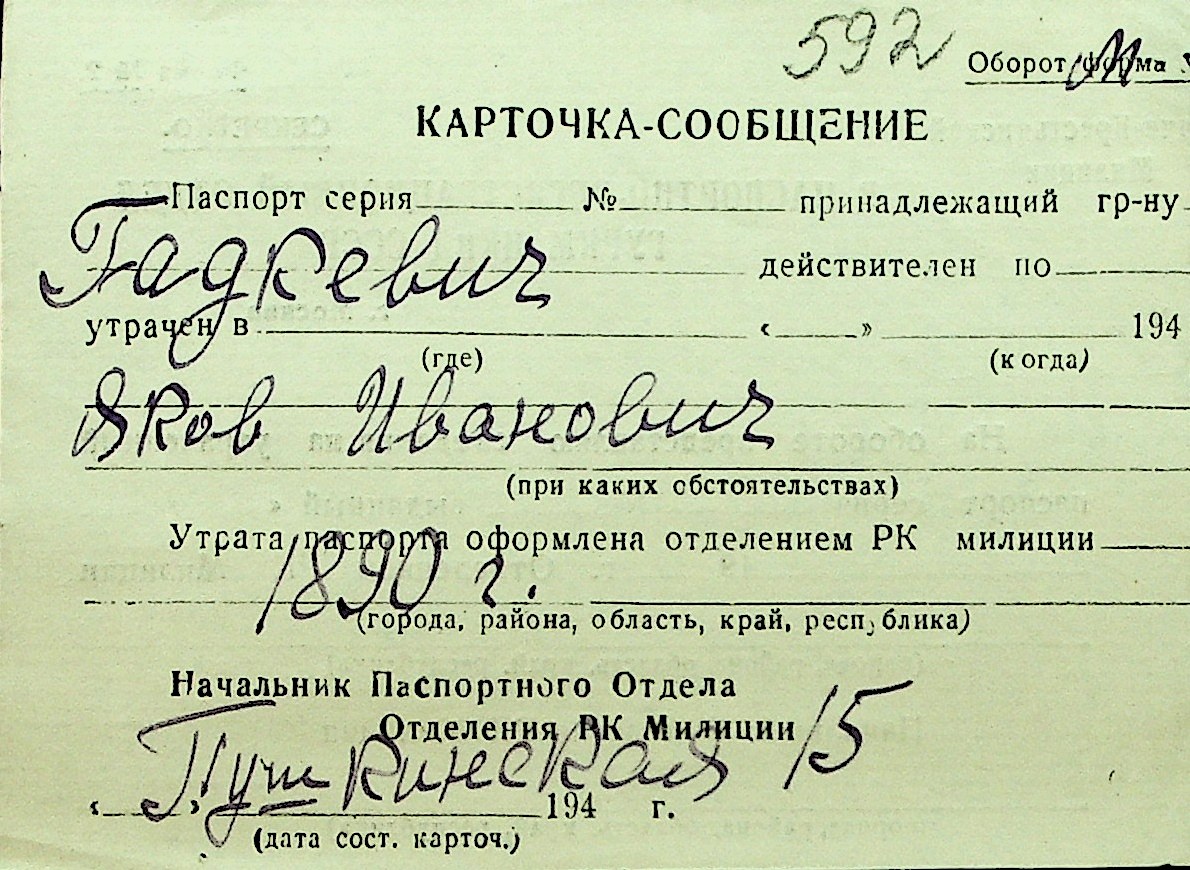 592
Оборот форма
КАРТОЧКА-СООБЩЕНИЕ
Паспорт серия № принадлежащий гр-ну
Гадкевич действителен по
утрачен в « » 194
(где) (когда)
Яков Иванович
(при каких обстоятельствах)
Утрата паспорта оформлена отделением РК милиции
1890 г.
(города, района, область, край, республика)
Начальник Паспортного Отдела
Отделения РК Милиции
Пушкинская 15
« » 194 г.
(дата сост. карточ.)